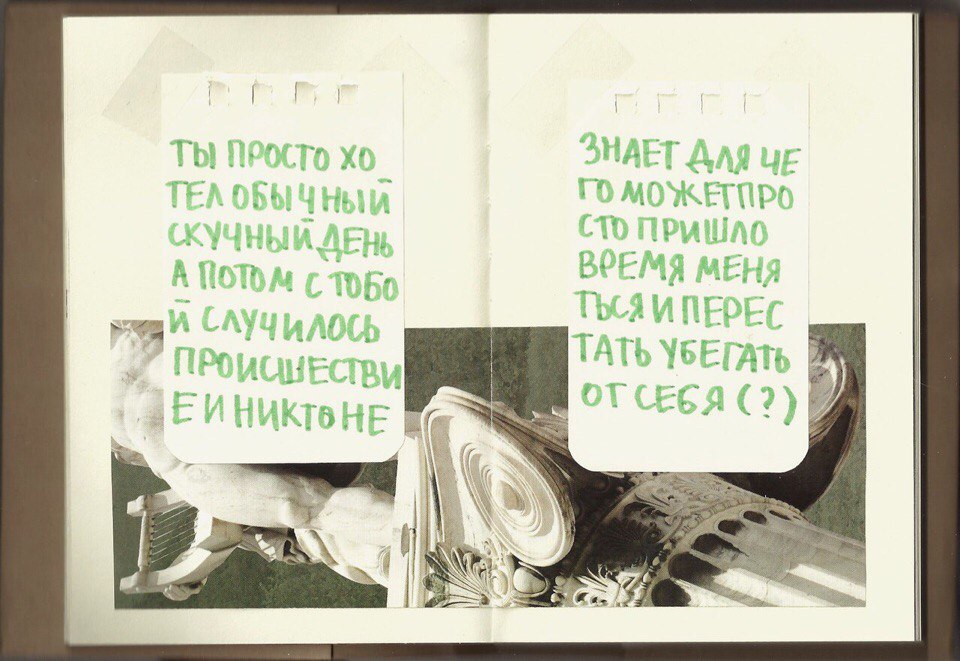 ТЫ ПРОСТО ХО
ТЕЛ ОБЫЧНЫЙ
СКУЧНЫЙ ДЕНЬ
А ПОТОМ С ТОБО
Й СЛУЧИЛОСЬ
ПРОИСШЕСТВИ
Е И НИКТО НЕ
ЗНАЕТ ДЛЯ ЧЕ
ГО МОЖЕТ ПРО
СТО ПРИШЛО
ВРЕМЯ МЕНЯ
ТЬСЯ И ПЕРЕС
ТАТЬ УБЕГАТЬ
ОТ СЕБЯ (?)